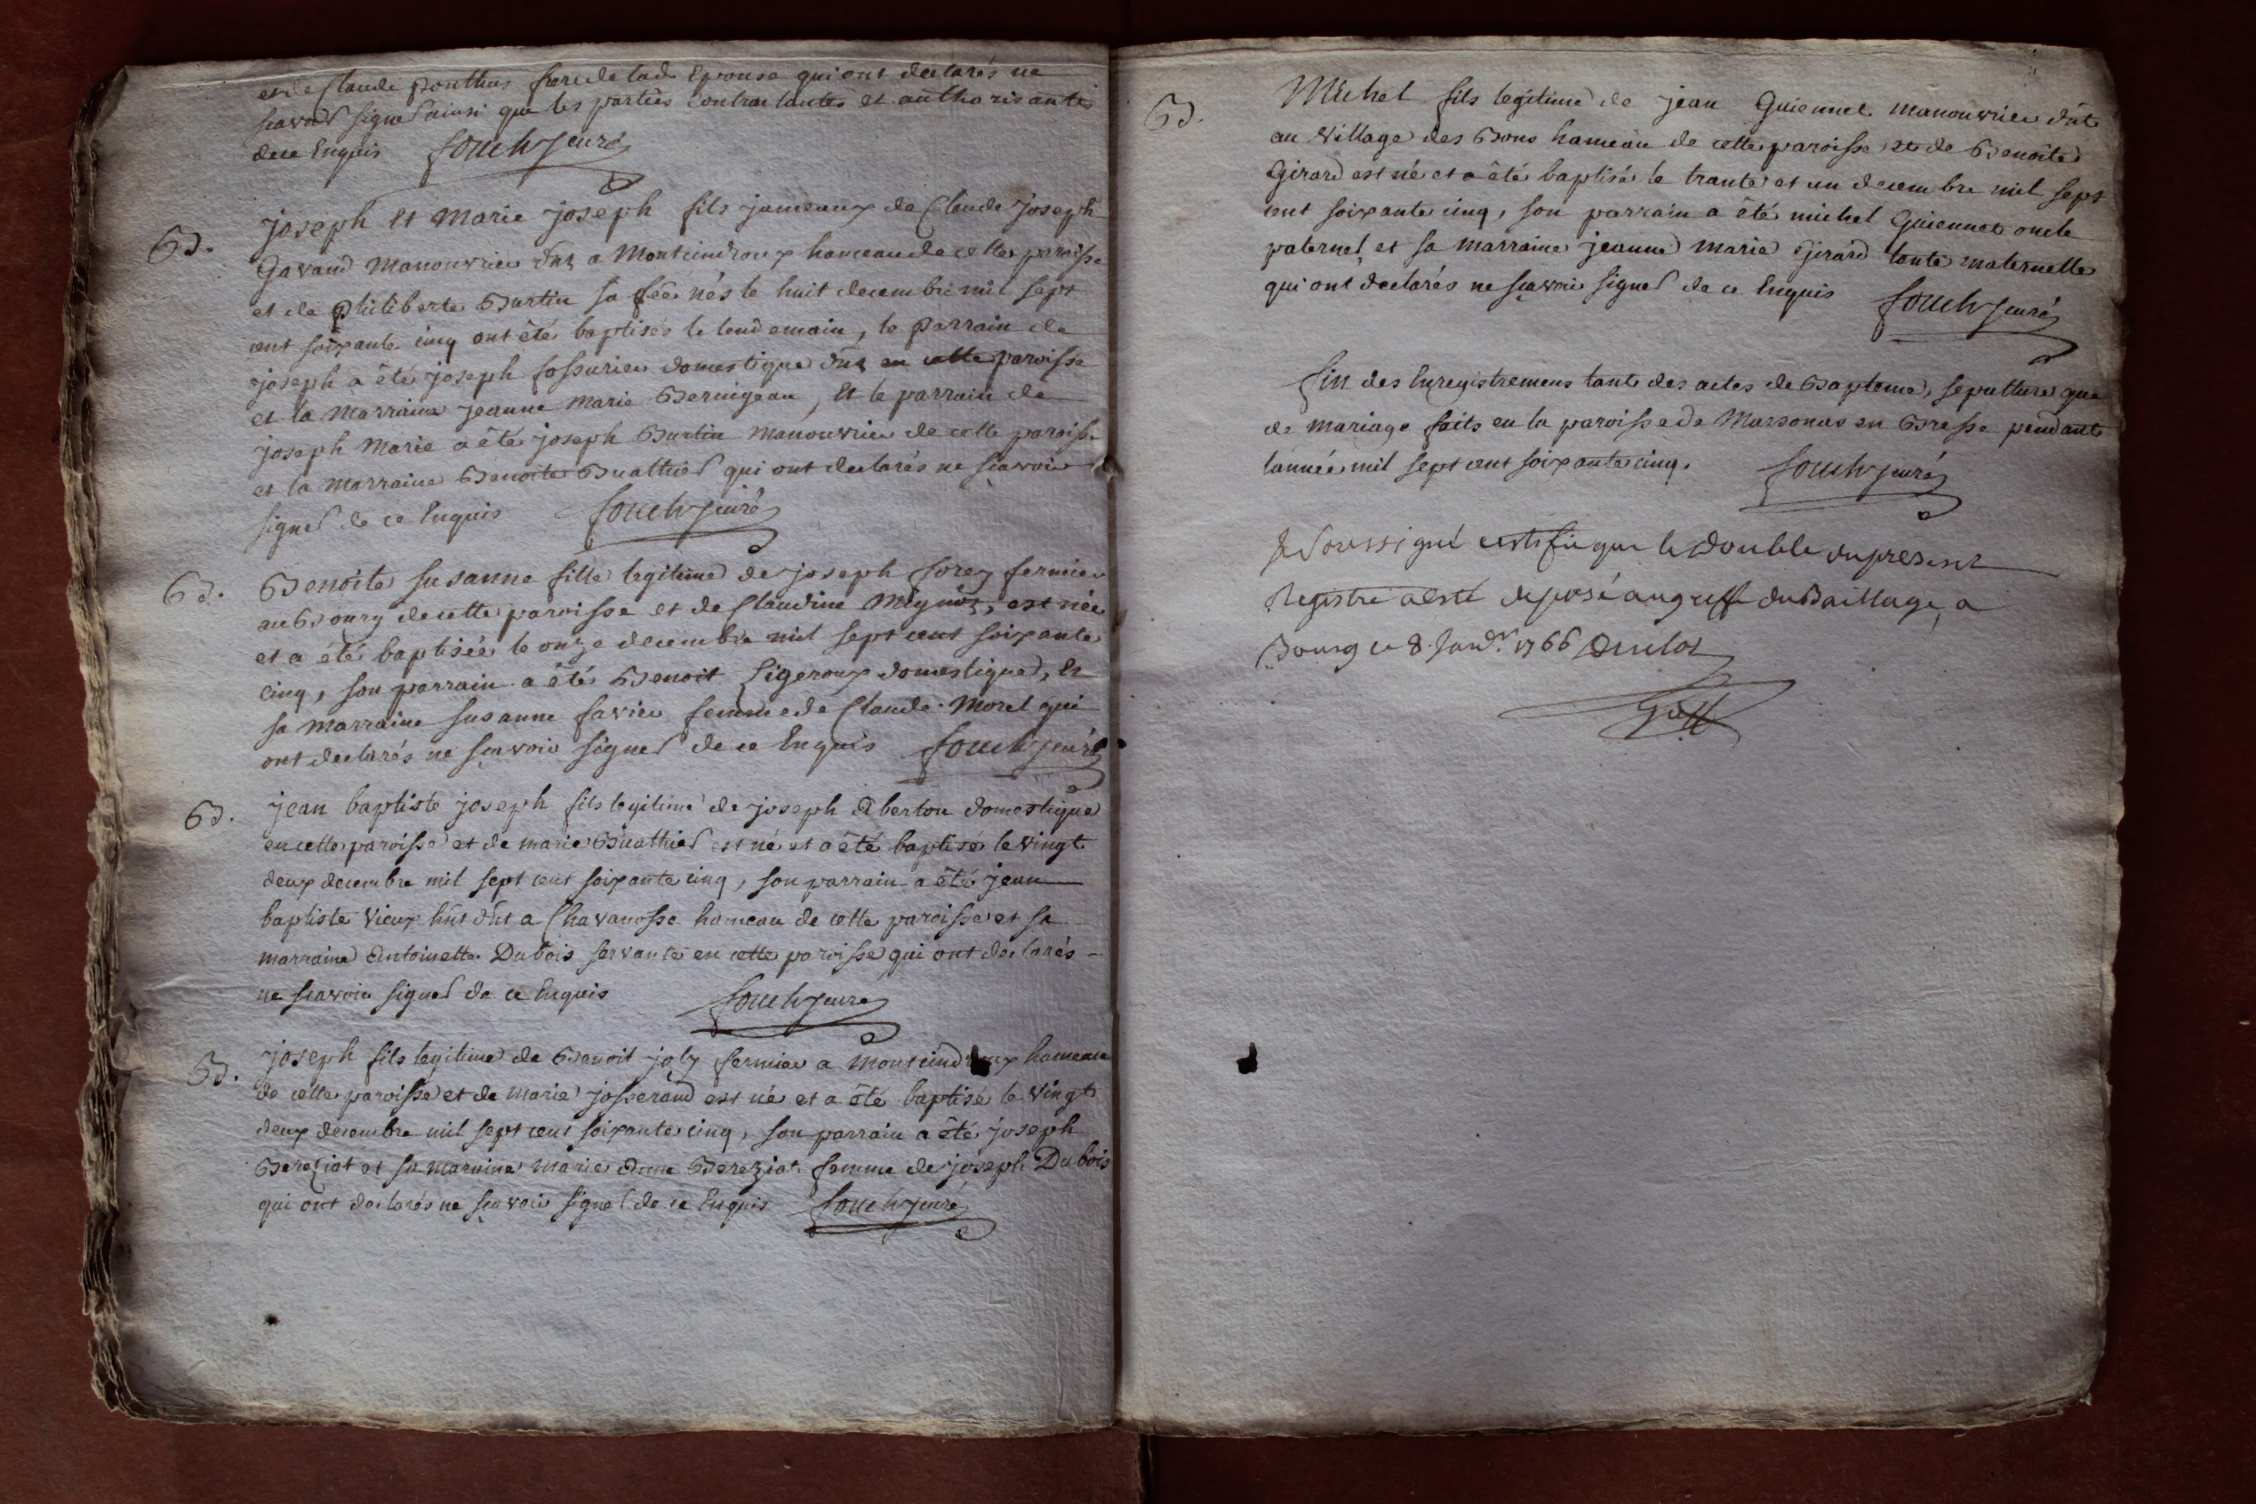 et de Claude Ponthus frere de lad. Epouse qui ont declarés ne
scavoir signer ainsi que les parties contractantes et authorisantes
de ce Enquis fouchy curé
B. Joseph et Marie joseph fils jumeaux de Claude Joseph
Gavand Manouvrier dnt a Montcindroux hameau de cette paroisse
et de philiberte Burtin sa fẽe nés le huit decembre mil sept
cent soixante cinq ont été baptisés le lendemain, le parrain de
joseph a été joseph fossurier domestique dnt en cette paroisse
et la Marraine jeanne marie Bernigeau, Et le parrain de
joseph Marie a été joseph Burtin manouvrier de cette paroisse
et la marraine Benoite Buathier qui ont declarés ne scavoir
signer de ce Enquis fouchy curé
B. Benoite susanne fille legitime de joseph forey fermier
au Bourg de cette paroisse et de Claudine Mignot, est née
et a été baptisée le onze decembre mil sept cent soixante
cinq, son parrain a été Benoit Ligeroux domestique, Et
sa marraine susanne favier femme de Claude Morel qui
ont declarés ne scavoir signer de ce Enquis fouchy curé
B. jean baptiste joseph fils legitime de joseph Alberton domestique
en cette paroisse et de marie Buathier est né et a été baptisé le vingt
deux decembre mil sept cent soixante cinq, son parrain a été jean
baptiste vieux hnt dnt a Chavanosse hameau de cette paroisse et sa
marraine Antoinette Dubois servante en cette paroisse qui ont declarés
ne scavoir signer de ce Enquis fouchy curé
B. joseph fils legitime de Benoit joly fermier a montcindroux hameau
de cette paroisse et de marie josserand est né et a été baptisé le vingt
deux decembre mil sept cent soixante cinq, son parrain a été joseph
Bereziat et sa marraine marie Anne Bereziat femme de joseph Dubois
qui ont declarés ne scavoir signer de ce Enquis fouchy curé
B. Michel fils legitime de jean Guiennet manouvrier dnt
au village des Bons hameau de cette paroisse et de Benoite
Girard est né et a été baptisé le trante et un decembre mil sept
cent soixante cinq, son parrain a été michel Guiennet oncle
paternel, et sa marraine jeanne marie Girard tante maternelle
qui ont declarés ne scavoir signer de ce Enquis fouchy curé
fin des Enregistremens tant des actes de Bapteme, sepulture que
de mariage faits en la paroisse de Marsonas en Bresse pendant
lannée mil sept cent soixante cinq. fouchy curé
Je soussigné certifie que le double du present
Registre a esté deposé au greffe du Baillage, a
Bourg ce 8. Janv. 1766
Greff